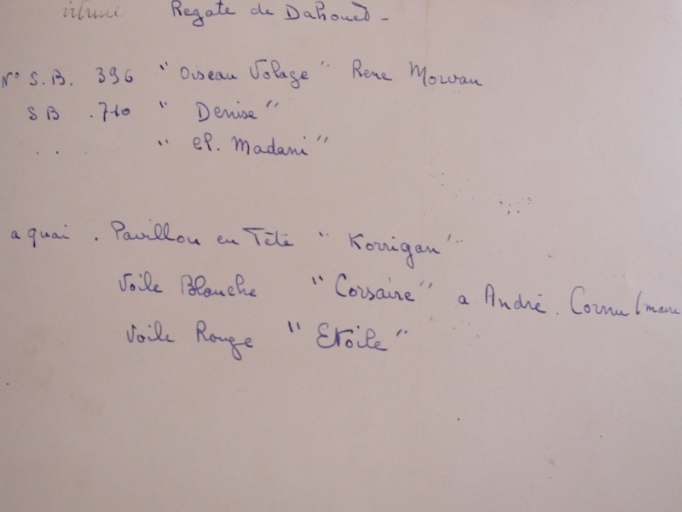 Regate de Dahouët -
N° S.B. 396 "Oiseau Volage" Rene Morvan
SB .710 " Denise"
. . " El. Madani"
a quai . Pavillon en Tête " Korrigan"
Voile Blanche "Corsaire" a André. Cornu (maire
Voile Rouge " Etoile"